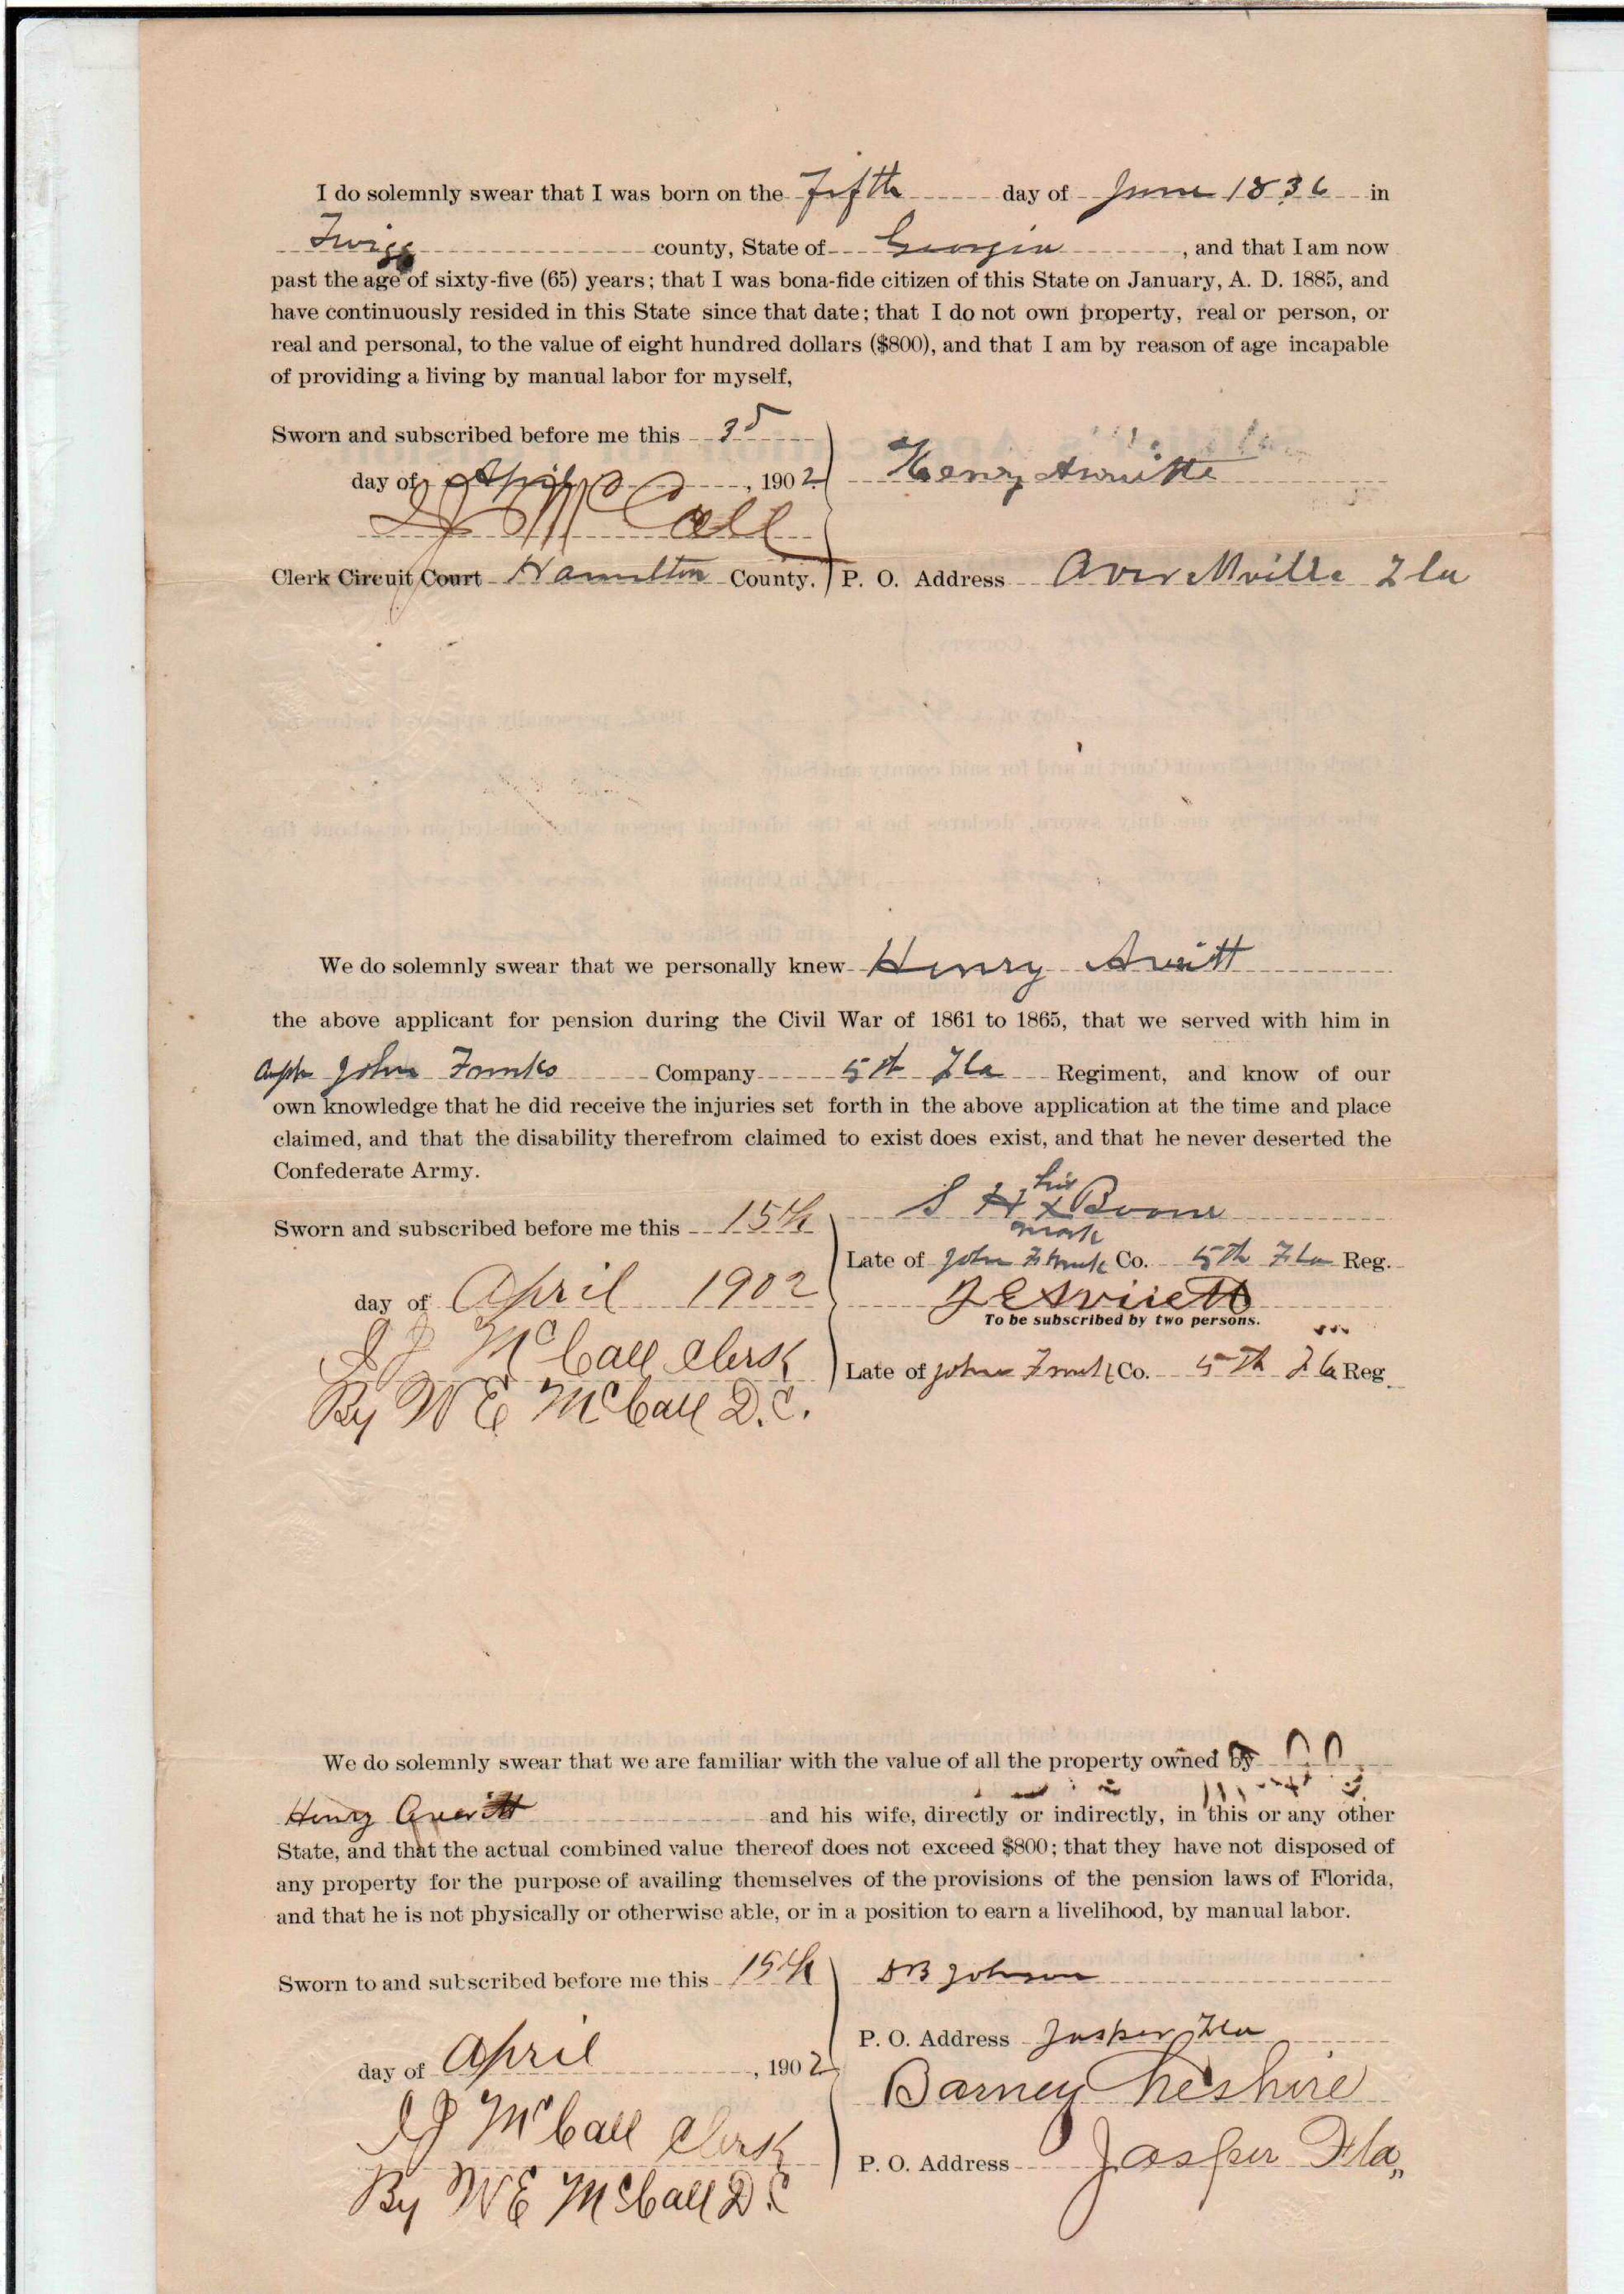 I do solemnly swear that I was born on the Fifth day of June 1836 in
Twigg county, State of Georgia, and that I am now
past the age of sixty-five (65) years; that I was bona-fide citizen of this State on January, A. D. 1885, and
have continuously resided in this State since that date; that I do not own property, real or person, or
real and personal, to the value of eight hundred dollars ($800), and that I am by reason of age incapable
of providing a living by manual labor for myself,
Sworn and subscribed before me this 3d
day of April, 1902 Henry
McCall
Clerk Circuit Court Hamilton County. P. O. Address Fla
We do solemnly swear that we personally knew Henry Averitt
the above applicant for pension during the Civil War of 1861 to 1865, that we served with him in
John Company 5th Fla Regiment, and know of our
own knowledge that he did receive the injuries set forth in the above application at the time and place
claimed, and that the disability therefrom claimed to exist does exist, and that he never deserted the
Confederate Army.
S H his x mark Boone
Sworn and subscribed before me this 15th
Late of John Co. 5th Fla Reg.
day of April 1902
To be subscribed by two persons.
McCall Clerk
Late of John Co. 5th Fla Reg
By W E McCall D.C.
We do solemnly swear that we are familiar with the value of all the property owned by
Henry Averitt and his wife, directly or indirectly, in this or any other
State, and that the actual combined value thereof does not exceed $800; that they have not disposed of
any property for the purpose of availing themselves of the provisions of the pension laws of Florida,
and that he is not physically or otherwise able, or in a position to earn a livelihood, by manual labor.
Sworn to and subscribed before me this 15th D B Johnson
P. O. Address Jasper Fla
day of April, 1902
Barney Cheshire
McCall Clerk
P. O. Address Jasper Fla,
By W E McCall D C